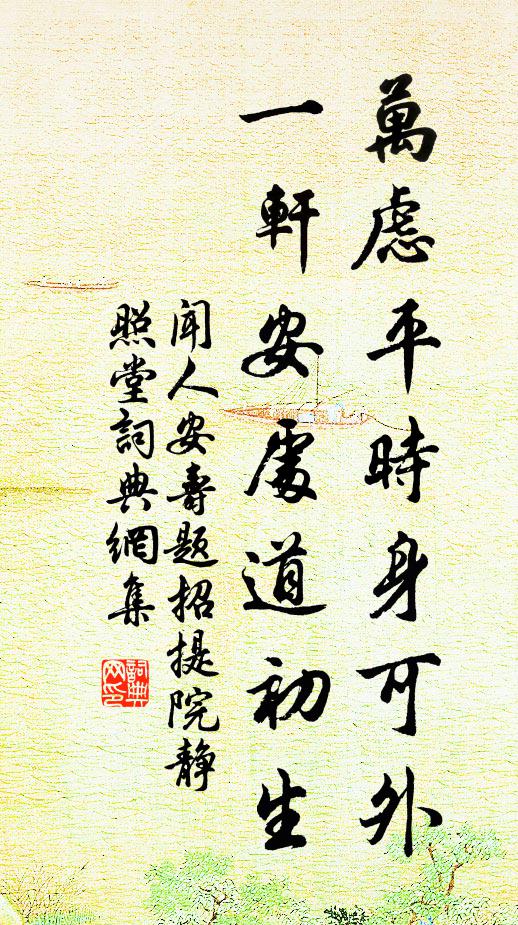 萬慮平時身可外
一軒安處道初生
聞人安壽題招提院靜
照堂詞典網集
詞典
网印